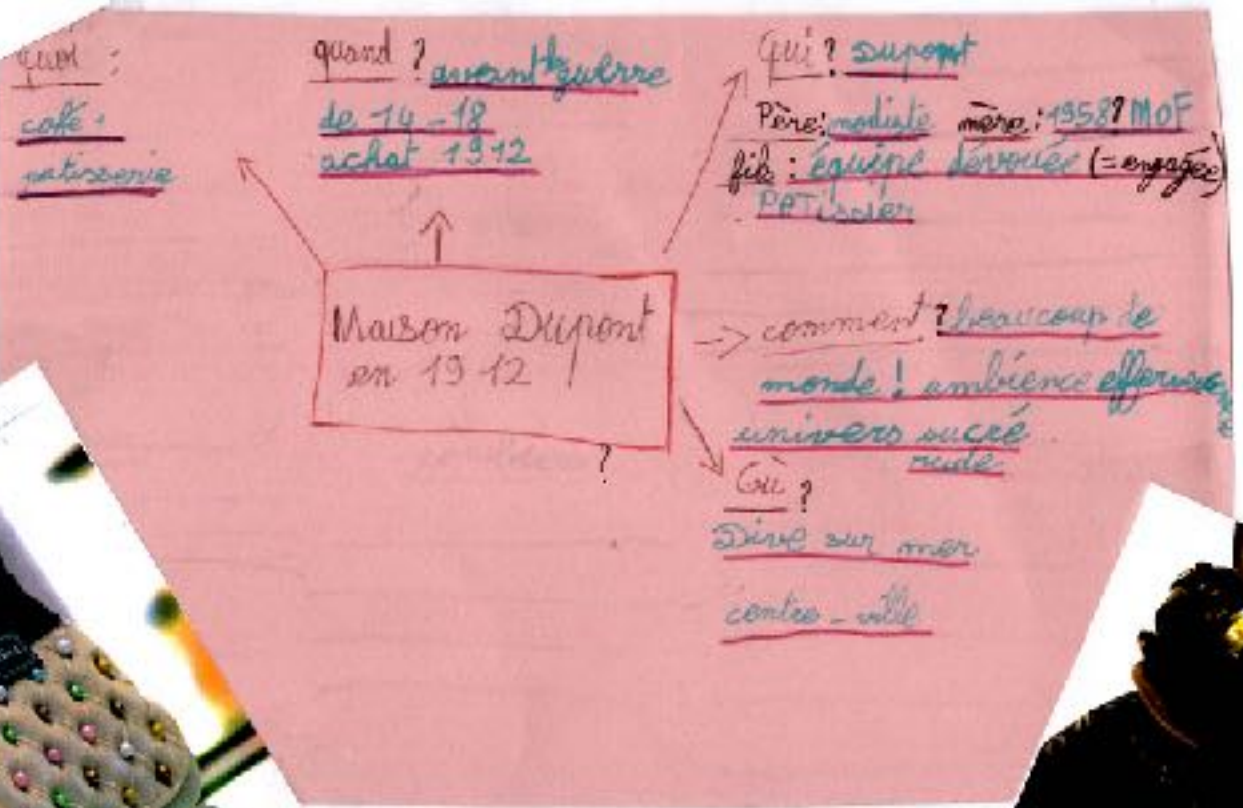 quoi :
café.
patisserie
quand ? avant la guerre
de 14-18
achat 1912
Qui ? Dupont
Père: modiste mère: 1958? MOF
fils : équipe dévouée (= engagée)
PATissier
Maison Dupont
en 1912
?
comment ? beaucoup de
monde ! ambience
univers sucré
rude
Où ?
Dive sur mer
centre-ville